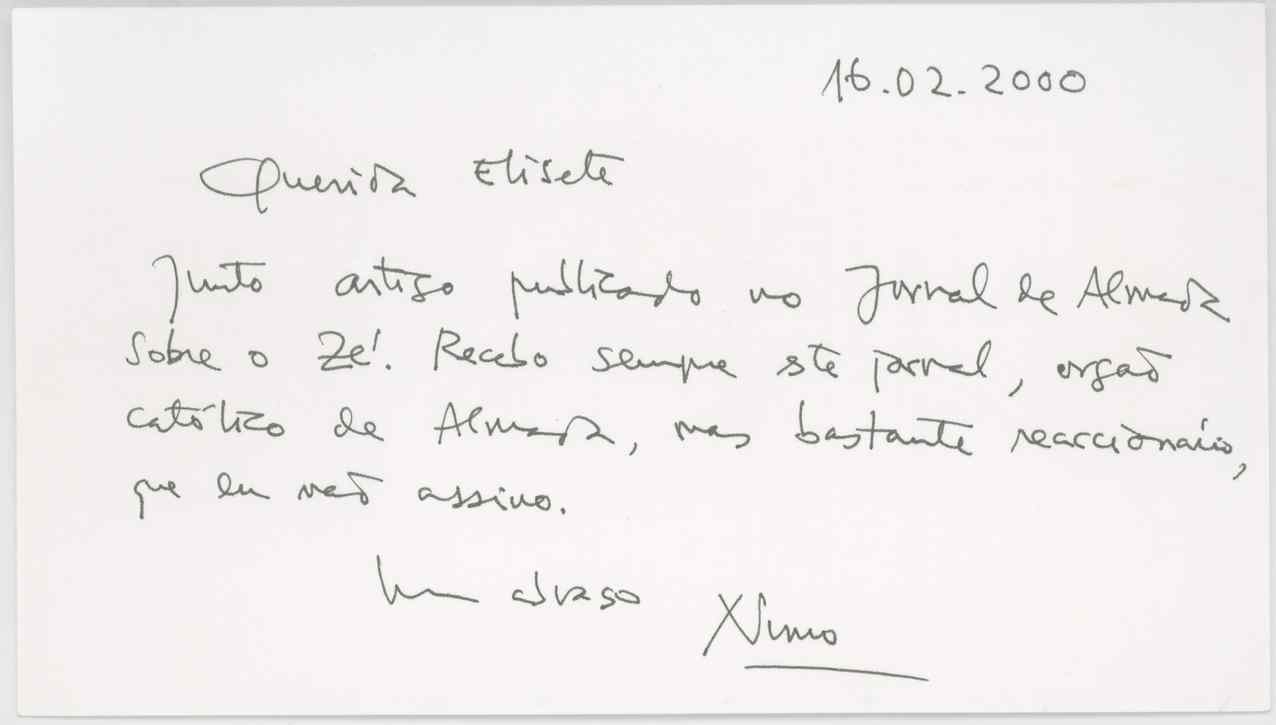 16.02.2000
Querida Elisete
Junto artigo publicado no Jornal de Almada
sobre o Zé. Recebo sempre este jornal, orgaõ
católico de Almada, mas bastante reaccionário,
que eu naõ assino.
Um abraço